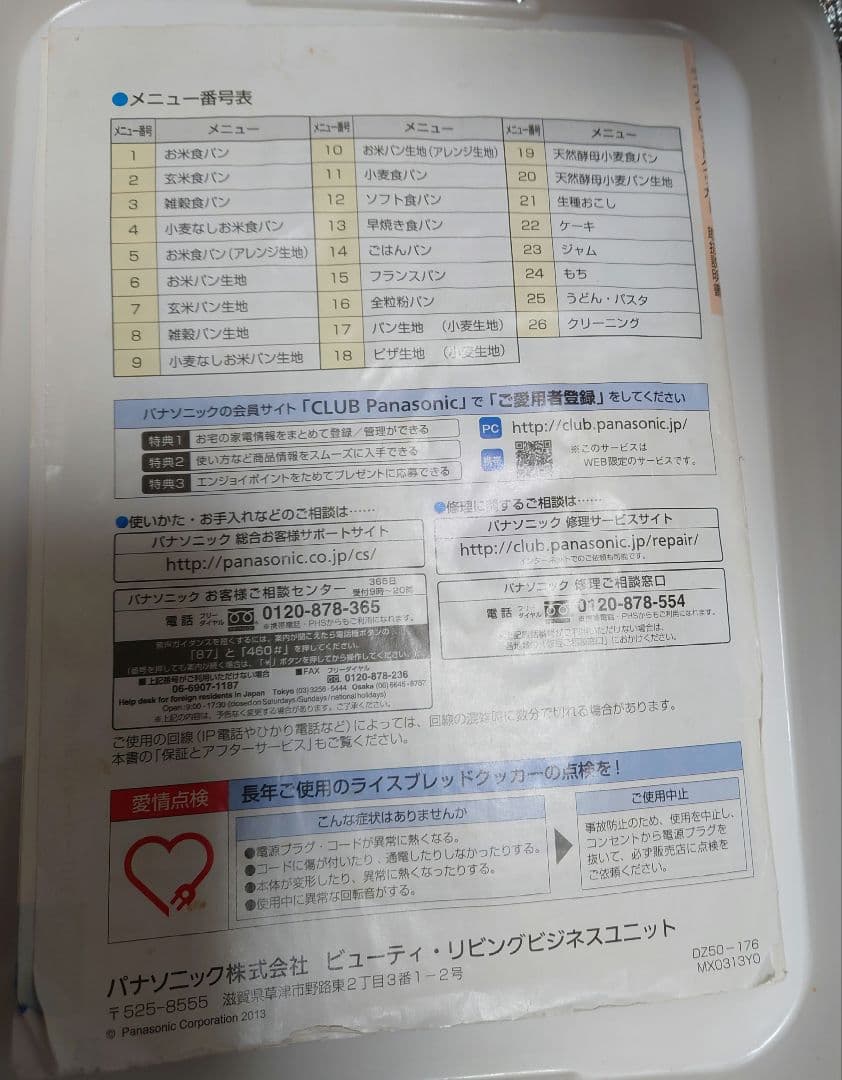 ●メニュー番号表
メニュー番号 メニュー メニュー番号 メニュー メニュー番号 メニュー
1 お米食パン 10 お米パン生地(アレンジ生地) 19 天然酵母小麦食パン
2 玄米食パン 11 小麦食パン 20 天然酵母小麦パン生地
3 雑穀食パン 12 ソフト食パン 21 生種おこし
4 小麦なしお米食パン 13 早焼き食パン 22 ケーキ
5 お米食パン(アレンジ生地) 14 ごはんパン 23 ジャム
6 お米パン生地 15 フランスパン 24 もち
7 玄米パン生地 16 全粒粉パン 25 うどん・パスタ
8 雑穀パン生地 17 パン生地 (小麦生地) 26 クリーニング
9 小麦なしお米パン生地 18 ピザ生地 (小麦生地)
パナソニックの会員サイト「CLUB Panasonic」で「ご愛用者登録」をしてください
特典1 お宅の家電情報をまとめて登録/管理ができる
特典2 使い方など商品情報をスムーズに入手できる
特典3 エンジョイポイントをためてプレゼントに応募できる
PC http://club.panasonic.jp/
携帯 ※このサービスは
WEB限定のサービスです。
●使いかた・お手入れなどのご相談は……
パナソニック 総合お客様サポートサイト
http://panasonic.co.jp/cs/
パナソニック お客様ご相談センター 365日
受付9時~20時
電話 フリーダイヤル 0120-878-365
※携帯電話・PHSからもご利用になれます。
音声ガイダンスを短くするには、案内が聞こえたら電話機ボタンの
「87」と「460#」を押してください。
(番号を押しても案内が続く場合は、「*」ボタンを押してから操作してください。)
■上記番号がご利用いただけない場合 ■FAX フリーダイヤル
06-6907-1187 0120-878-236
Help desk for foreign residents in Japan Tokyo (03) 3256-5444 Osaka (06) 6645-8787
Open: 9:00 - 17:30 (closed on Saturdays/Sundays/national holidays)
※上記の内容は、予告なく変更する場合があります。ご了承ください。
●修理に関するご相談は……
パナソニック 修理サービスサイト
http://club.panasonic.jp/repair/
インターネットでのご依頼も可能です。
パナソニック 修理ご相談窓口
電話 フリーダイヤル 0120-878-554
※携帯電話・PHSからもご利用になれます。
※上記電話番号がご利用いただけない場合は、
各地域の「修理ご相談窓口」におかけください。
ご使用の回線(IP電話やひかり電話など)によっては、回線の混雑時に数分で切れる場合があります。
本書の「保証とアフターサービス」もご覧ください。
愛情点検
長年ご使用のライスブレッドクッカーの点検を!
こんな症状はありませんか
●電源プラグ・コードが異常に熱くなる。
●コードに傷が付いたり、通電したりしなかったりする。
●本体が変形したり、異常に熱くなったりする。
●使用中に異常な回転音がする。
ご使用中止
事故防止のため、使用を中止し、
コンセントから電源プラグを
抜いて、必ず販売店に点検を
ご依頼ください。
パナソニック株式会社 ビューティ・リビングビジネスユニット
〒525-8555 滋賀県草津市野路東2丁目3番1-2号
© Panasonic Corporation 2013
DZ50-176
MX0313Y0